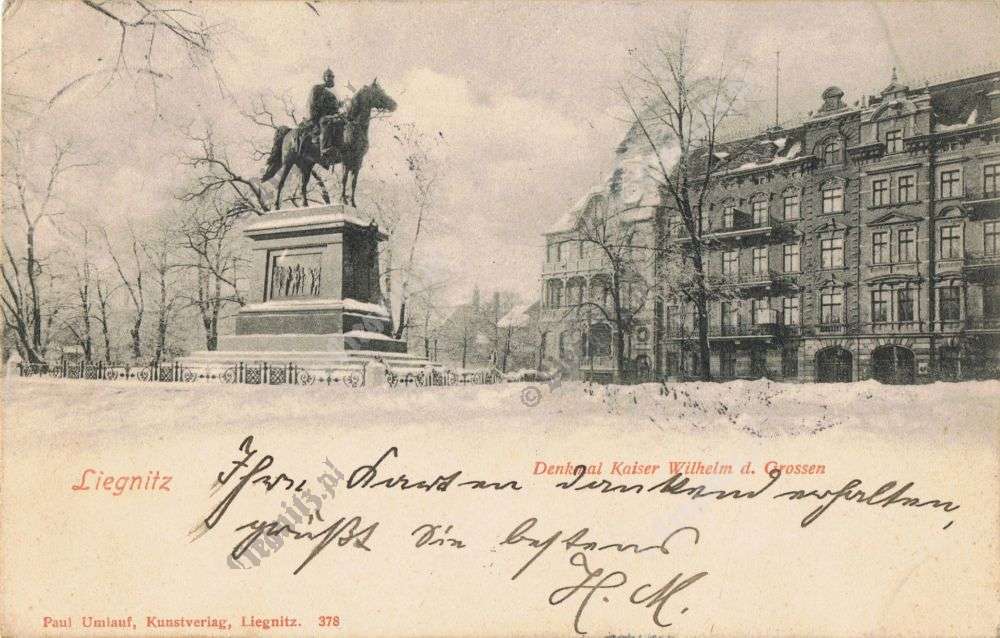 Liegnitz
Denkmal Kaiser Wilhelm d. Grossen
Ihre Karten dankend erhalten,
grüßt Sie bestens
H. M.
Paul Umlauf, Kunstverlag, Liegnitz. 378
© liegnitz.pl